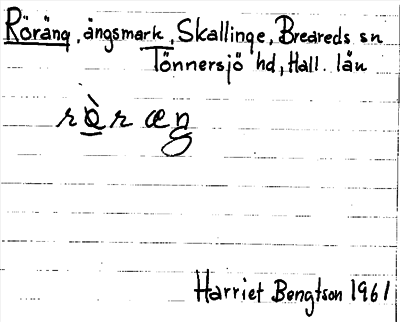 Röräng, ängsmark, Skallinge, Breareds sn
Tönnersjö hd, Hall. län
rò̲ræŋ
Harriet Bengtson 1961